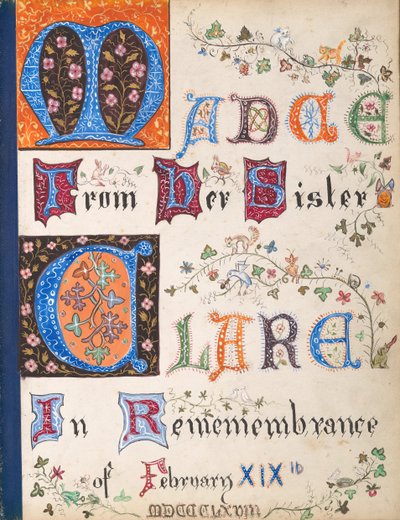 MADGE
From Her Sister
CLARA
In Rememembrance
of February XIXth
MDCCCLXVIII